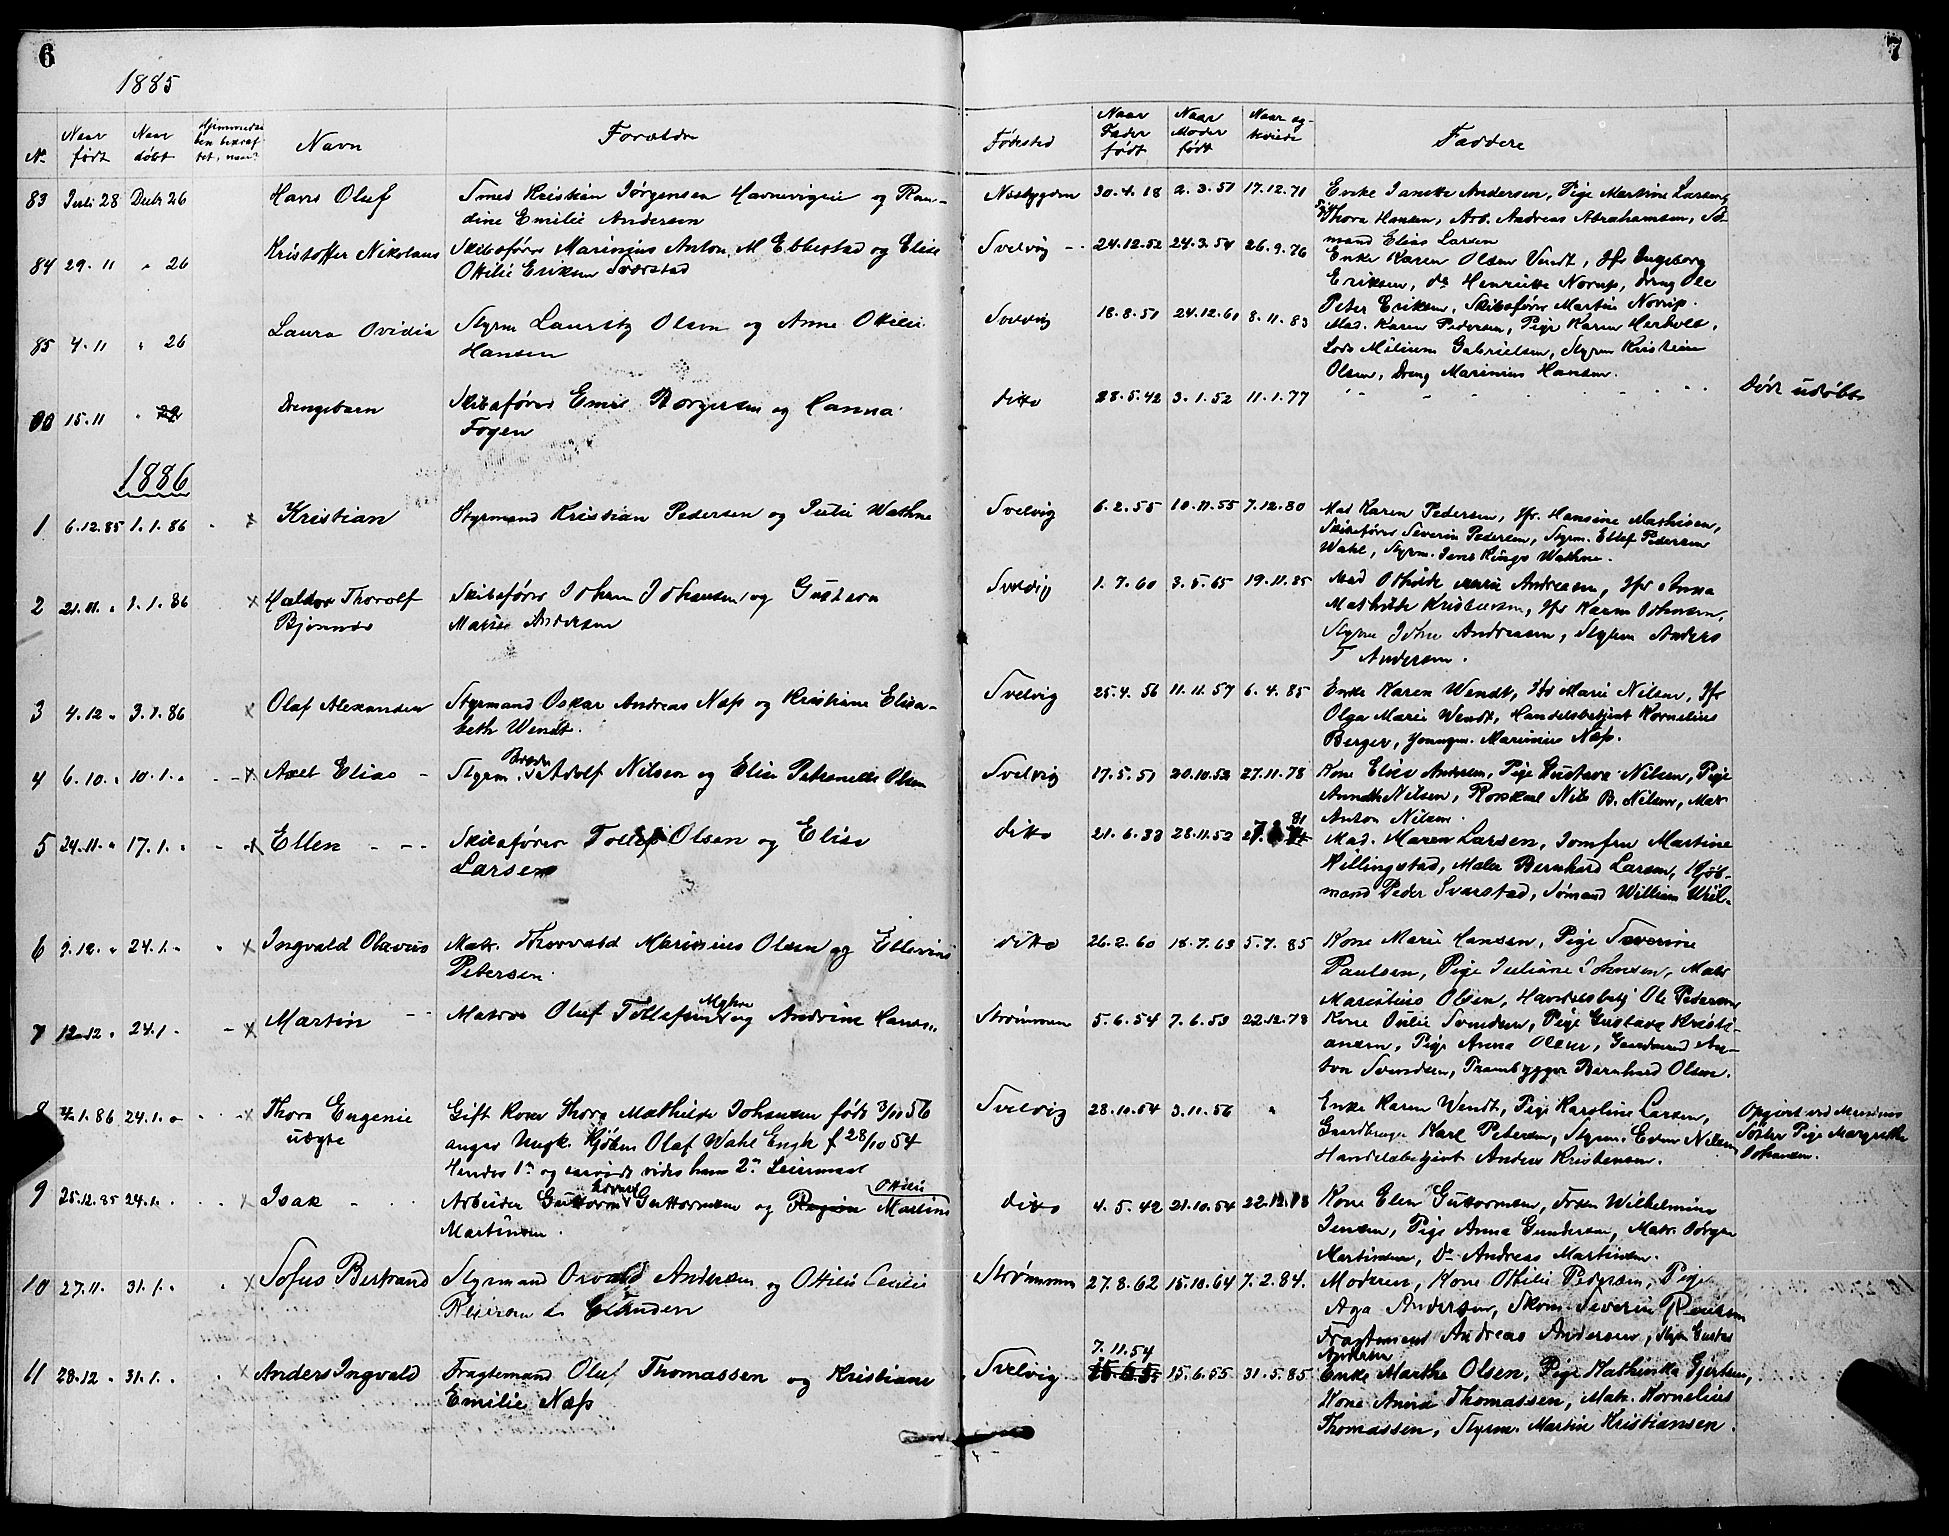 6
1885
7
No Naar født Naar døbt Hjemmedaaben bekræftet, naar? Navn Forældre Fødested Naar Fader født Naar Moder født Naar ægteviede Faddere
83 Juli 28 Decbr 26 Hans Oluf Smed Kristian Jørgensen Havnevigen og Ran-
dine Emilie Andersen
Næsbygden 30.4.18 2.3.51 17.12.71 Enke Janette Andersen, Pige Martine Larsen,
Thora Hansen, Arb. Andreas Abrahamsen, Sø-
mand Elias Larsen
84 29.11 " 26 Kristoffer Nikolaus Skibsfører Marinius Anton M Ebbestad og Elise
Ottilie Eriksen Sværstad
Svelvig 24.12.52 24.3.54 26.9.76 Enke Karen Olsen Vendt, Jfr Ingeborg
Eriksen, do Henrikke Norup, Dreng Ole
Peter Eriksen, Skibsfører Martin Norup.
85 4.11 " 26 Laura Ovidia Styrm Lauritz Olsen og Anne Ottilie
Hansen
Svelvig 18.8.51 24.12.61 8.11.83 Mad. Karen Pedersen, Pige Karen Herholt,
Lods Gabrielsen, Styrm Kristian
Olsen, Dreng Marinius Hansen.
00 15.11 " 29 Drengebarn Skibsfører Emil Borgersen og Hanna
Fogen
ditto 28.5.42 3.1.52 11.1.77 Død udøbt
1886
1 6.12.85 1.1.86 x Kristian Styrmand Kristian Pedersen og Julie Wathne
Svelvig 6.2.55 10.11.55 7.12.80 Mad Karen Pedersen, Jfr. Hansine Mathisen,
Skibsfører Severin Pedersen, Styrm. Ellef Pedersen
Wahl, Styrm. Jens Wathne.
2 21.11 " 1.1.86 x Thorolf
Bjørnnes
Skibsfører Johan Johansen og Gustava
Marie Andersen
Svelvig 1.7.60 3.5.65 19.11.85 Mad Othilde Marie Andreasen, Jfr Anna
Mathilde Kristiansen, Jfr Karen Johnsen,
Styrm John Andreasen, Styrm Anders
T Andersen.
3 4.12 " 3.1.86 x Olaf Alexander Styrmand Oskar Andreas Næss og Kristiane Elisa-
beth Wendt.
Svelvig 25.4.56 11.11.57 6.4.85 Enke Karen Wendt, Jfr Marie Nilsen, Jfr
Olga Marie Wendt, Handelsbetjent Kornelius
Berger, Youngm. Marinius Næss.
4 6.10 " 10.1. " x Axel Elias Styrm. Adolf Nilsen og Elise Petronelle Olsen
Svelvig 17.5.51 20.10.52 27.11.78 Kone Elise Andersen, Pige Gustava Nilsen, Pige
Annette Nilsen, Nils B. Nilsen, Matr
Anton Nilsen
5 24.11 " 17.1. " x Ellen Skibsfører Tollef Olsen og Elise
Larsen
ditto 21.6.33 28.11.52 81 Mad. Maren Larsen, Jomfru Martine
Killingstad, Maler Bernhard Larsen, Kjøb-
mand Peder Svarstad, Sømand William
6 9.12. " 24.1. " x Ingvald Olavus Matr. Thorvald Marinius Olsen og Ellevine
Petersen.
ditto 26.2.60 18.7.63 5.7.85 Kone Marie Hansen, Pige Severine
Paulsen, Pige Juliane Johnsen, Matr
Marintius Olsen, Handelsbetj Ole Pedersen
7 12.12 " 24.1 x Martin Matros Oluf Tollefsen og Andrine Hans..
Strømmen 5.6.54 7.6.53 22.12.78 Kone Julie Svendsen, Pige Gustava Kristi-
ansen, Pige Anna Olsen, Gaardmand An-
ton Svendsen, Trambygger Bernhard Olsen.
8 1.86 24.1. " x Thora Eugenie
uægte
Gift Kone Thora Mathilde Johansen født 3/11 56
angir Ungk. Kjøbm Olaf Wahl Engh f 28/10 54
Hendes 1ste og saavidt vides hans 2den Leiermaal
Svelvig 28.10.54 3.11.56 " Enke Karen Wendt, Pige Karoline Larsen,
Gaardbruger Karl Petersen, Styrm. Edvin Nilsen,
Handelsbetjent Anders Kristensen.
Opgivet ved Moderens
Søster Pige Margrethe
Johansen.
9 25.12.85 24.1. x Isak Arbeider Guttorm Guttormsen og Ottilie Martine
Martinsen.
ditto 4.5.42 21.10.54 22.12.78 Kone Elen Guttormsen, Frøken Wilhelmine
Jensen, Pige Anna Gundersen, Matr.
Martinsen, Do Andreas Martinsen.
10 27.11. 31.1. " x Sofus Bertrand Styrmand Osvald Andersen og Ottilie Cecilie
Reiersen
Strømmen 27.8.62 15.10.64 7.2.84. Moderen, Kone Othilie Pedersen, Pige
Aga Andersen, Skom. Severin Reiersen
Fragtemand Andreas Andersen, Styrm Gustav
Andersen
11 28.12 " 31.1. " x Anders Ingvald Fragtemand Oluf Thomassen og Kristiane
Emilie Næss
Svelvig 7.11.54 15.6.55 31.5.85 Enke Marthe Olsen, Pige Kathinka Gjertsen,
Kone Anine Thomassen, Matr. Kornelius
Thomassen, Styrm. Martin Kristiansen.